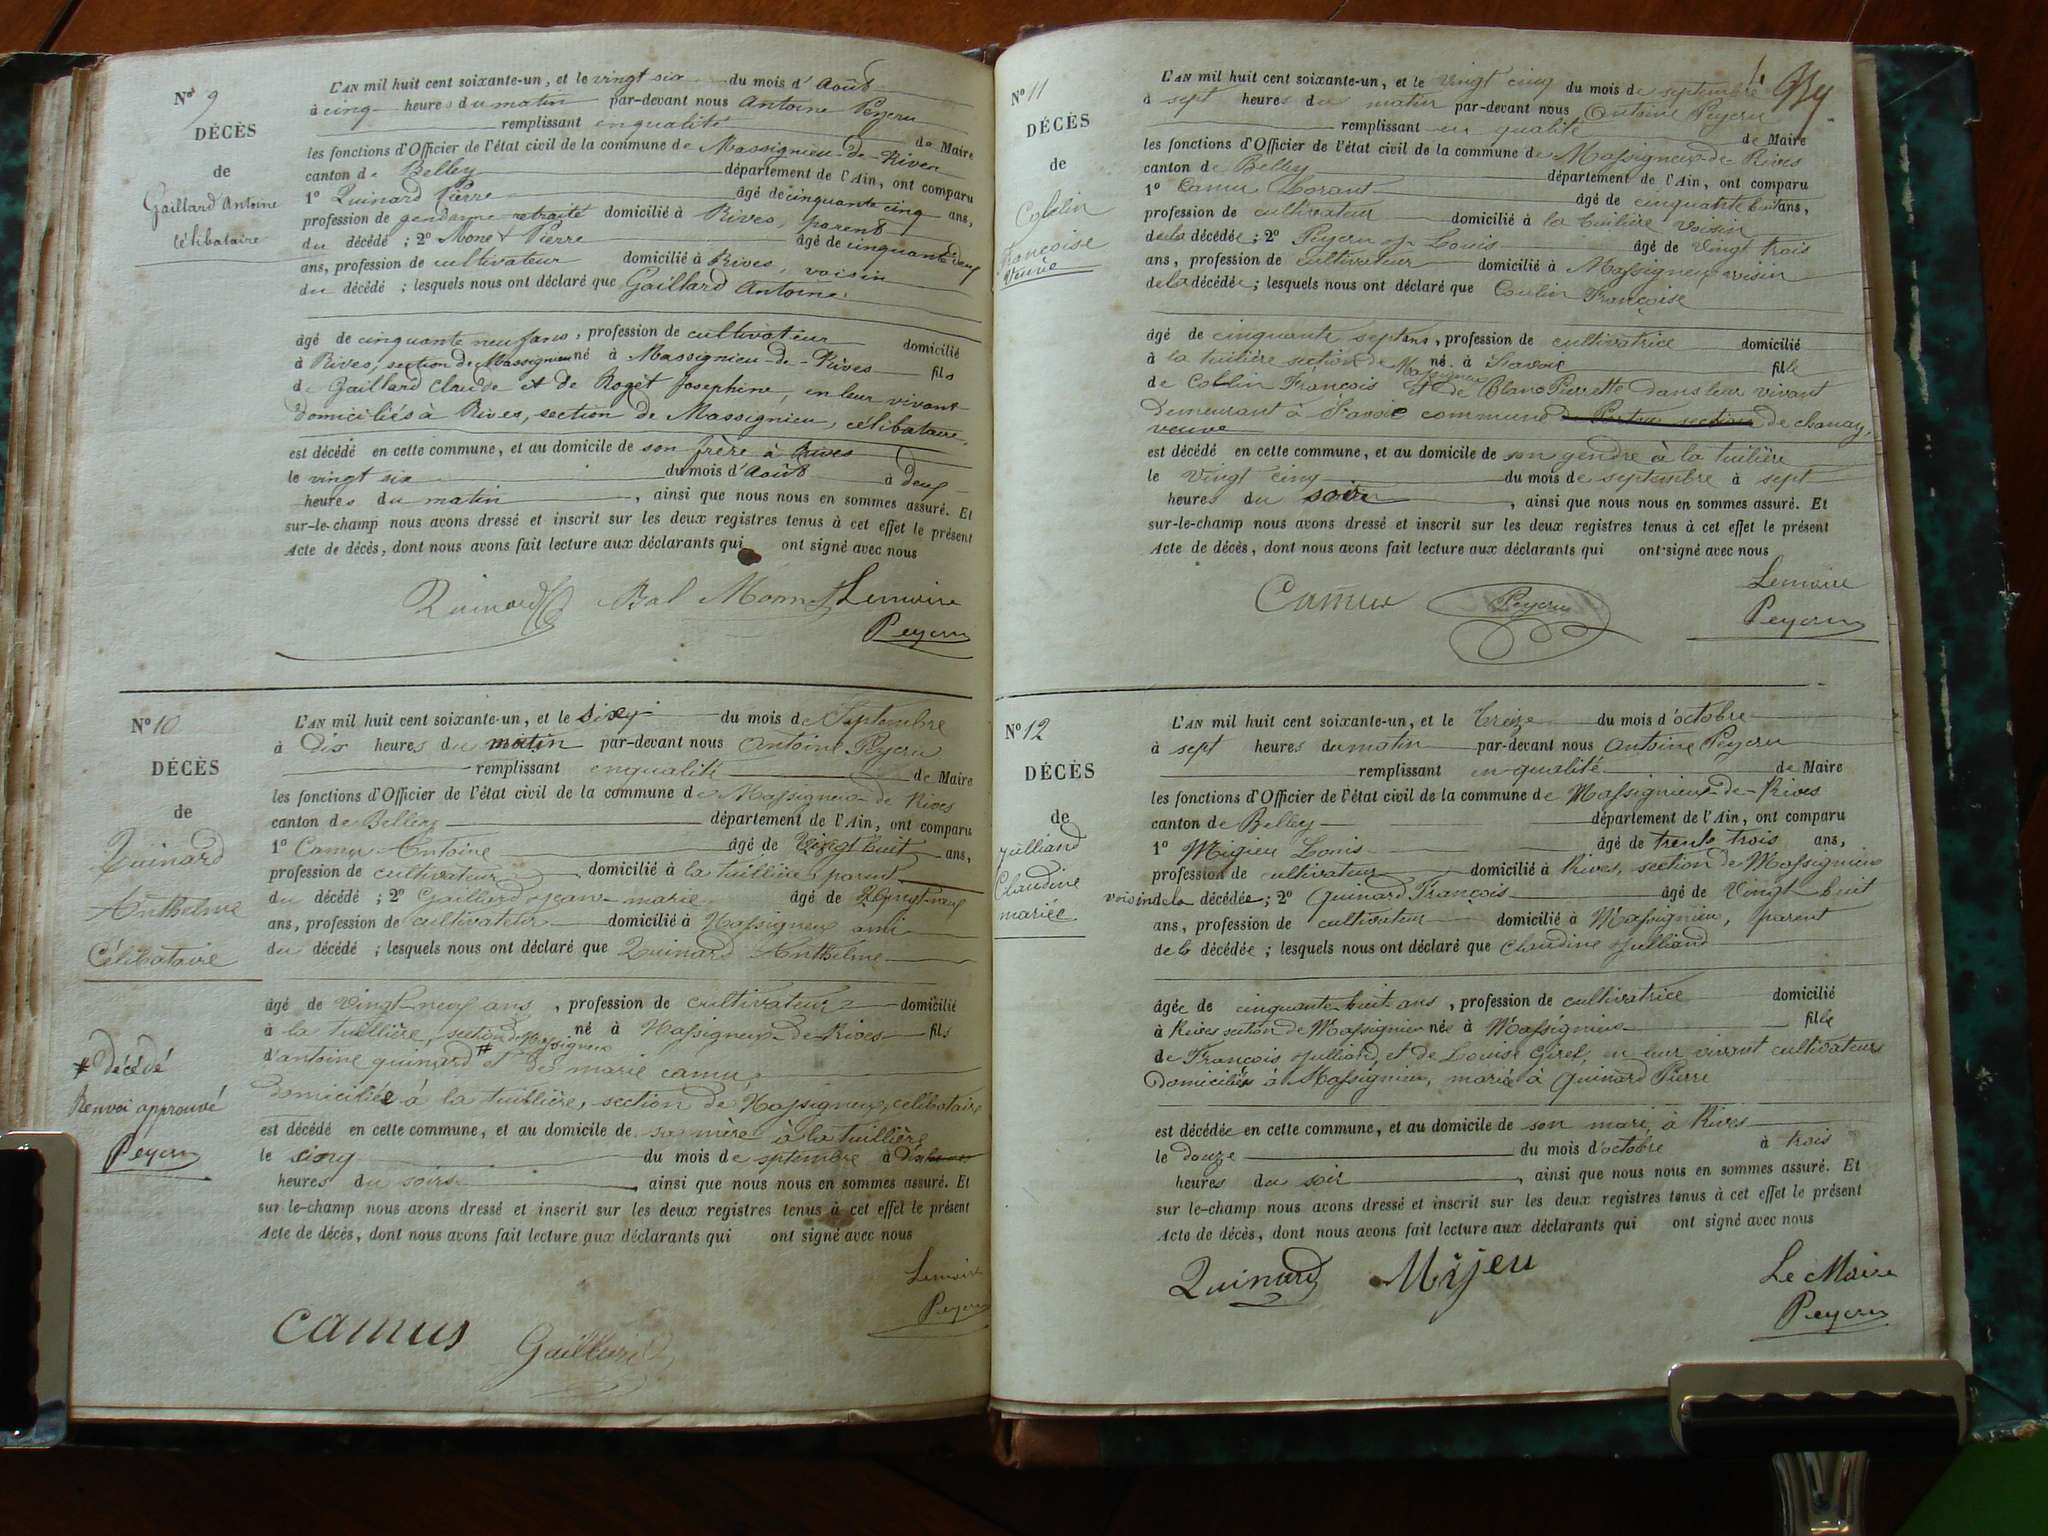 Nº 9
DÉCÈS
de
Gaillard Antoine
Célibataire
L'AN mil huit cent soixante-un, et le vingt six du mois d'Août
à cinq heures du matin par-devant nous Antoine Peycru
remplissant en qualité de Maire
les fonctions d'Officier de l'état civil de la commune de Massignieu-de-Rives
canton de Belley département de l'Ain, ont comparu
1º Quinard Pierre âgé de cinquante cinq ans,
profession de gendarme retraité domicilié à Rives, parent
du décédé ; 2º Monet Pierre âgé de cinquante deux
ans, profession de cultivateur domicilié à Rives, voisin
du décédé ; lesquels nous ont déclaré que Gaillard Antoine
âgé de cinquante neuf ans, profession de cultivateur domicilié
à Rives, section de Massignieu né à Massignieu-de-Rives fils
de Gaillard Claude et de Roget Josephine, en leur vivant
domiciliés à Rives, section de Massignieu, célibataire,
est décédé en cette commune, et au domicile de son frère à Rives
le vingt six du mois d'Août à deux
heures du matin, ainsi que nous nous en sommes assuré. Et
sur-le-champ nous avons dressé et inscrit sur les deux registres tenus à cet effet le présent
Acte de décès, dont nous avons fait lecture aux déclarants qui ont signé avec nous
Quinard Bal Monnet Lemaire
Peycru
Nº 10
DÉCÈS
de
Quinard
Anthelme
Célibataire
# décédé
Renvoi approuvé
Peycru
L'AN mil huit cent soixante-un, et le six du mois de Septembre
à Dix heures du matin par-devant nous Antoine Peycru
remplissant en qualité de Maire
les fonctions d'Officier de l'état civil de la commune de Massignieu-de Rives
canton de Belley département de l'Ain, ont comparu
1º Camus Antoine âgé de Vingt huit ans,
profession de cultivateur domicilié à la tuillière, parent
du décédé ; 2º Gaillard jean-marie âgé de Vingt-neuf
ans, profession de cultivateur domicilié à Massignieu ami
du décédé ; lesquels nous ont déclaré que Quinard Anthelme
âgé de vingt neuf ans, profession de cultivateur domicilié
à la tuillière, section de Massignieu né à Massignieu-de-Rives fils
d'antoine quinard # et de marie camus
domiciliée à la tuillière, section de Massignieu, célibataire
est décédé en cette commune, et au domicile de sa mère à la tuillière
le cinq du mois de septembre à dix
heures du soirs, ainsi que nous nous en sommes assuré. Et
sur-le-champ nous avons dressé et inscrit sur les deux registres tenus à cet effet le présent
Acte de décès, dont nous avons fait lecture aux déclarants qui ont signé avec nous
Lemaire
Peycru
camus Gaillard
Nº 11
DÉCÈS
de
Collin
françoise
veuve
L'AN mil huit cent soixante-un, et le Vingt cinq du mois de septembre
à sept heures du matin par-devant nous Antoine Peycru
remplissant en qualité de Maire
les fonctions d'Officier de l'état civil de la commune de Massignieu-de Rives
canton de Belley département de l'Ain, ont comparu
1º Camus Lorant âgé de cinquante huit ans,
profession de cultivateur domicilié à la tuilière voisin
de la décédée ; 2º Peycru Louis âgé de Vingt trois
ans, profession de cultivateur domicilié à Massignieu, voisin
de la décédée ; lesquels nous ont déclaré que Coulin Françoise
âgé de cinquante sept ans, profession de cultivatrice domicilié
à la tuilière section de Massignieu né à Savoie fille
de Collin François et de Blanc Pierrette dans leur vivant
Demeurant à Savoie commune de chanay,
veuve
est décédé en cette commune, et au domicile de son gendre à la tuilière
le Vingt cinq du mois de septembre à sept
heures du soir, ainsi que nous nous en sommes assuré. Et
sur-le-champ nous avons dressé et inscrit sur les deux registres tenus à cet effet le présent
Acte de décès, dont nous avons fait lecture aux déclarants qui ont signé avec nous
Camus Peycru Lemaire
Peycru
Nº 12
DÉCÈS
de
julliand
Claudine
mariée
L'AN mil huit cent soixante-un, et le treize du mois d'octobre
à sept heures du matin par-devant nous Antoine Peycru
remplissant en qualité de Maire
les fonctions d'Officier de l'état civil de la commune de Massignieu-de-Rives
canton de Belley département de l'Ain, ont comparu
1º Migieu Louis âgé de trente trois ans,
profession de cultivateur domicilié à Rives, section de Massignieu
voisin de la décédée ; 2º Quinard François âgé de Vingt huit
ans, profession de cultivateur domicilié à Massignieu, parent
de la décédée ; lesquels nous ont déclaré que Claudine julliand
âgée de cinquante huit ans, profession de cultivatrice domicilié
à Rives section de Massignieu née à Massignieu fille
de François julliand, et de Louise Girel, en leur vivant cultivateurs
domiciliés à Massignieu, mariée à Quinard Pierre
est décédée en cette commune, et au domicile de son mari, à Rives
le douze du mois d'octobre à trois
heures du soir, ainsi que nous nous en sommes assuré. Et
sur-le-champ nous avons dressé et inscrit sur les deux registres tenus à cet effet le présent
Acte de décès, dont nous avons fait lecture aux déclarants qui ont signé avec nous
Quinard Mijeu Le Maire
Peycru